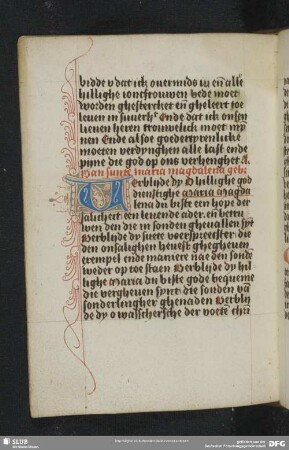 bidde v dat ick ouermids iu en alle
hillighe ioncfrouwen bede moet
worden ghestercket en gheleert toe
leuen in suuerh't Ende dat ick onsen
lieuen heren trouwelick moet my
nen Ende alsoe goedertyrenlicke
moeten verdynghen alle last ende
pyne die god op ons verhenghet A
Van sunte maria magdalena gebet
Verblyde dy O hillighe god
dienstighe Maria magda
lena du biste een hope der
salicheit een leuende ader en betru
wen den die in sonden gheuallen syt
Verblyde dy sucte voerspreester die
den onsalighen heuest ghegheuen
exempel ende maniere nae den sond
weder op toe staen Verblyde dy hil
lighe Maria du biste gode bequeme
die vergheuen synt die sonden van
sonderlingher ghenaden Verbly
de dy o wasschersche der voete chri
SLUB
DFG